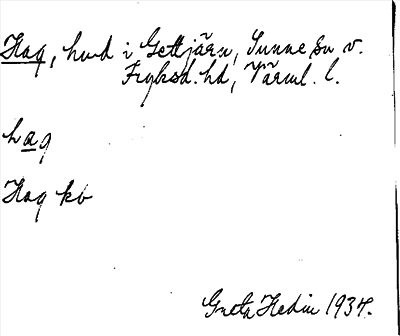 Hag, hmd i Gettjärn, Sunne sn v.
Fryksd. hd, Värml. l.
hag
Hag kb
Greta Hedin 1934.